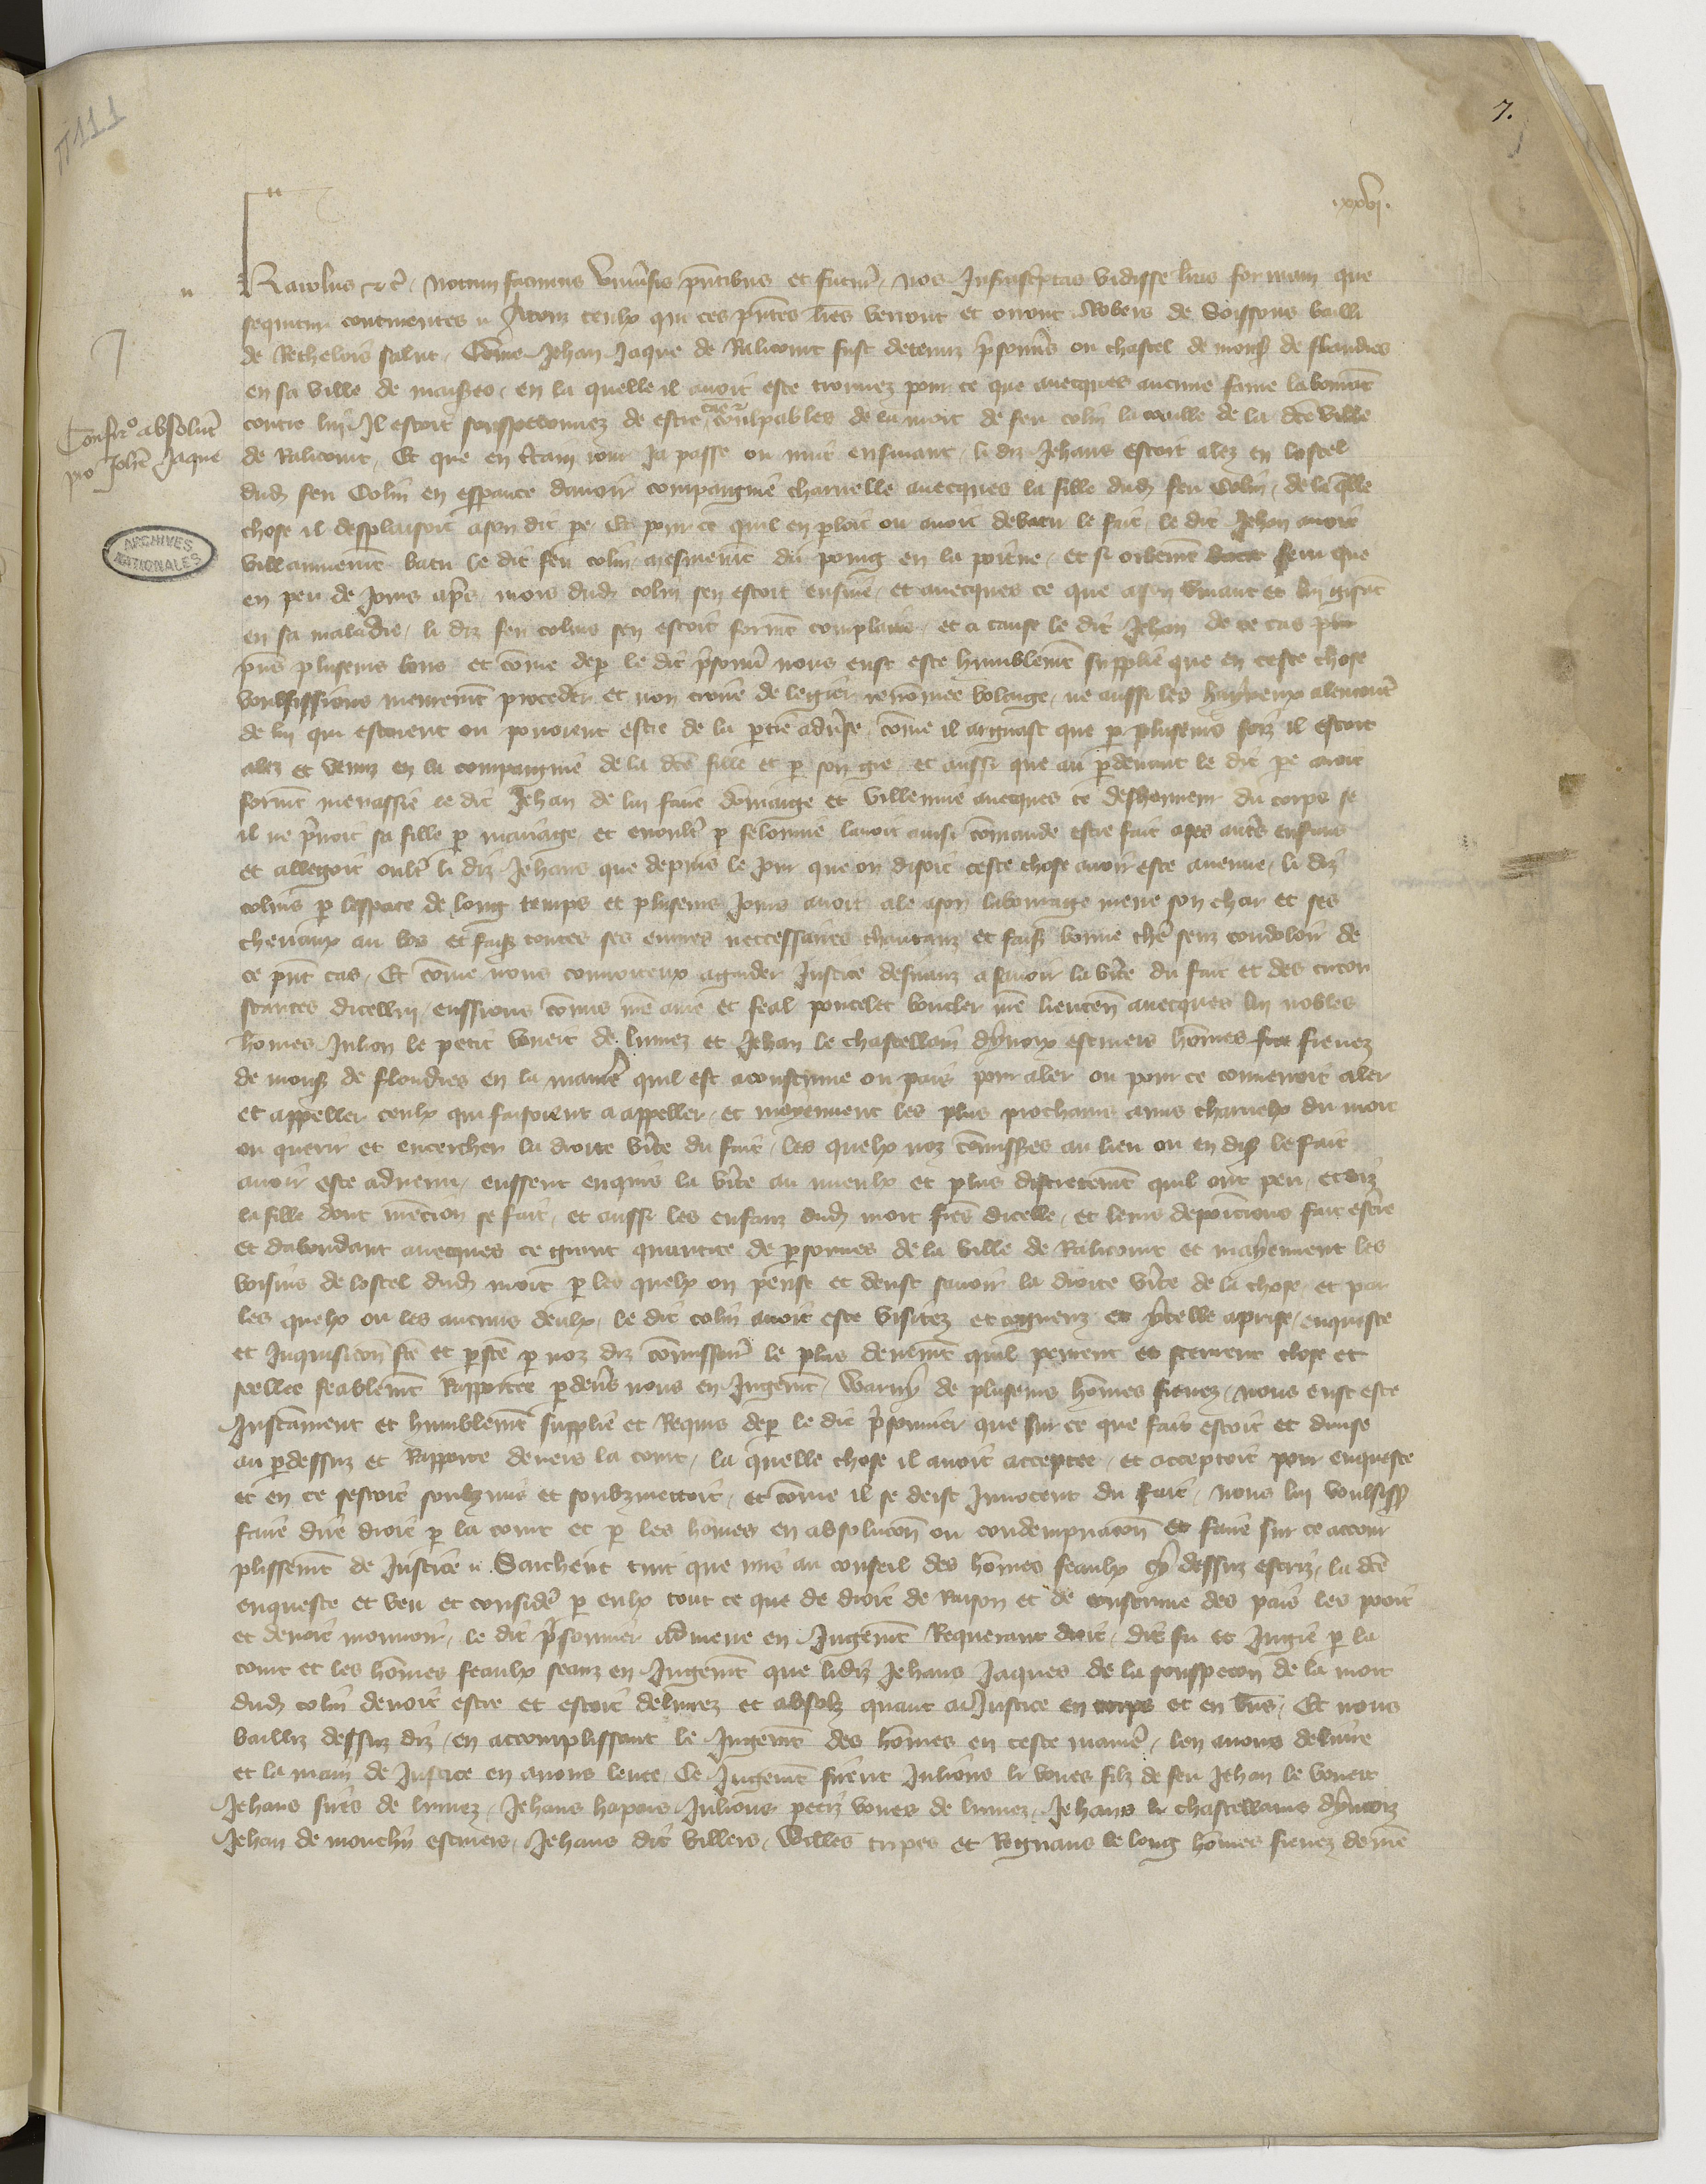 7.
.xxvi.
Karolus etc. Notum facimus universis pntibus et futur. nos infrascriptas vidisse lras formam que
sequitur continentes Atous ceulx qui ces pntes lres verront et orront Robers de Soissons bailli
de Rethelois salut, Cōme Jehan Jaque de Ralicourt fust detenuz psonns ou chastel de mons de flandres
en sa ville de en la quelle il avoit este trouvez pour ce que avecques aucune fame labourāt
contre lui Il estoit souspeconnez de estre coulpables de la mort de feu colin la de la dce ville
Confir absolut
pro Johē Jaque
de Ralicourt, Et que en ctain jour ja passe ou nuit ensuiant, li diz Jehans estoit alez en lostel
dud feu Colin en esperance davoir compaignie charnelle avecques la fille dud feu Colin, de la qlle
chose il desplaisoit a son dit pe, Et pour ce quil en ploit ou avoit debatu le fait, le dit Jehan avoit
villainnemēt batu le dit feu colin, mesmemēt du poing en la poitrne, et si orblemēt feru que
en peu de jours aps, mors dud colin sen estoit ensuie, et avecques ce que a son vivant et lui gisāt
en sa maladie, li diz feu colins sen estoit formēt complains, et a cause le dit Jehan de ce cas
pns pluseurs bons et cōme dep le dit psonn nous eust este humblemēt supplie que en ceste chose
voulsissions meuremēt proceder et non croire de legiere renōmee volaige, ne aussi les hayneux alencont
de lui qui estoient ou pouoient estre de la ptie advse, cōme il arguast que p pluseurs foiz il estoit
alez et venuz en la compaignie de la dce fille et p son gre, et aussi que au pdevant le dit pe avoit
formēt menassie le dit Jehan de lui faire dōmaige et villennie avecques ce deshonneur du corps se
il ne pnoit sa fille p mariage, et enoult p felonnie lavoit ainsi cōmande estre fait a ses auts enfans
et allegoit oult li diz Jehans que depuis le jour que on disoit ceste chose avoir este avenue, li diz
colins p lespace de long temps et pluseurs jours avoit ale a son labourage mene son char et ses
chevaux au bos et fais toutes ses euvres neccessaires chantanz et fais bonne chē senz condoloir de
ce pnt cas, Et cōme nous convoiteux agarder justice desiranz a savoir la vite du fait et des circon
stances dicellui, eussions cōmis nre ame et feal poncelet boucler nre lieuten avecques lui nobles
hōmes Julion le petit voueit de lumez et Jehan le chastellain dyvoix escuiers hōmes fievez
de mons de flandres en la manie quil est acoustume ou pais pour aler ou pour ce convenoit aler
et appeller ceulx qui faisoient a appeller, et moyenment les plus prochains amis charnelx du mort
ou querir et encerchier la droite vite du fait, les quelx noz cōmisses au lieu ou en dis le fait
avoir este advenu, eussent enquis la vite au mieulx et plus discretemēt quil ont peu, et oiz
la fille dont mēcion se fait, et aussi les enfanz dud mort fres dicelle, et leurs depoicions fait escre
et dabondant avecques ce grant quantite de psonnes de la ville de Ralicourt et mayenment les
voisins de lostel dud mort p les quelx on pense et deust savoir la droite vite de la chose, et par
les quelx ou les aucuns deulx, le dit colin avoit este visitez et et ycelle aprise, enqueste
et inquisicon fce et pfce p noz diz cōmissair le plus deuemēt quil peurent et sceurent close et
seellee feablemēt Rapportee pdevs nous en Jugemēt, Garny de pluseurs hōmes fievez, nous eust este
Instāment et humblemēt supplie et Requis dep le dit psonnier que sur ce que fait estoit et
au pdessuz et Rapporte devers la court, la quelle chose il avoit acceptee, et acceptoit pour enqueste
et en ce sestoit soubzmis et soubzmettoit, et cōme il se deist Innocent du fait, nous lui voulsiss
faire dire droit p la court et p les hōmes en absolucon ou condempnacon et faire sur ce accom
plissemēt de justice. Saichent tuit que mis au conseil des hōmes feaulx cy dessuz escriz, la dce
enqueste et veu et consider p eulx tout ce que de droit de Raison et de coustume des pais les pooit
et devoit mouvoir, le dit psonnier admene en jugemēt Requerant droit, dit fu et jugie p la
court et les hōmes feaulx seanz en jugemēt que li diz Jehans Jaques de la souspecon de la mort
dud colin devoit estre et estoit delivrez et absolz quant a justice en corps et en bns, Et nous
bailliz dessuz diz, en accomplissant le jugemēt des hōmes en ceste manie, len avons delivre
et la main de justice en avons levee, Ce jugemēt firent Julions li voues filz de feu Jehan le voueit
Jehans sires de lumez, Jehans hapars Julions petiz voues de lumez, Jehans li chastellains dyvoiz
Jehan de mouchin escuiers, Jehans dit villers, Willes tripes et Regnaus le long hōmes fievez de nre
ARCHIVES
NATIONALES